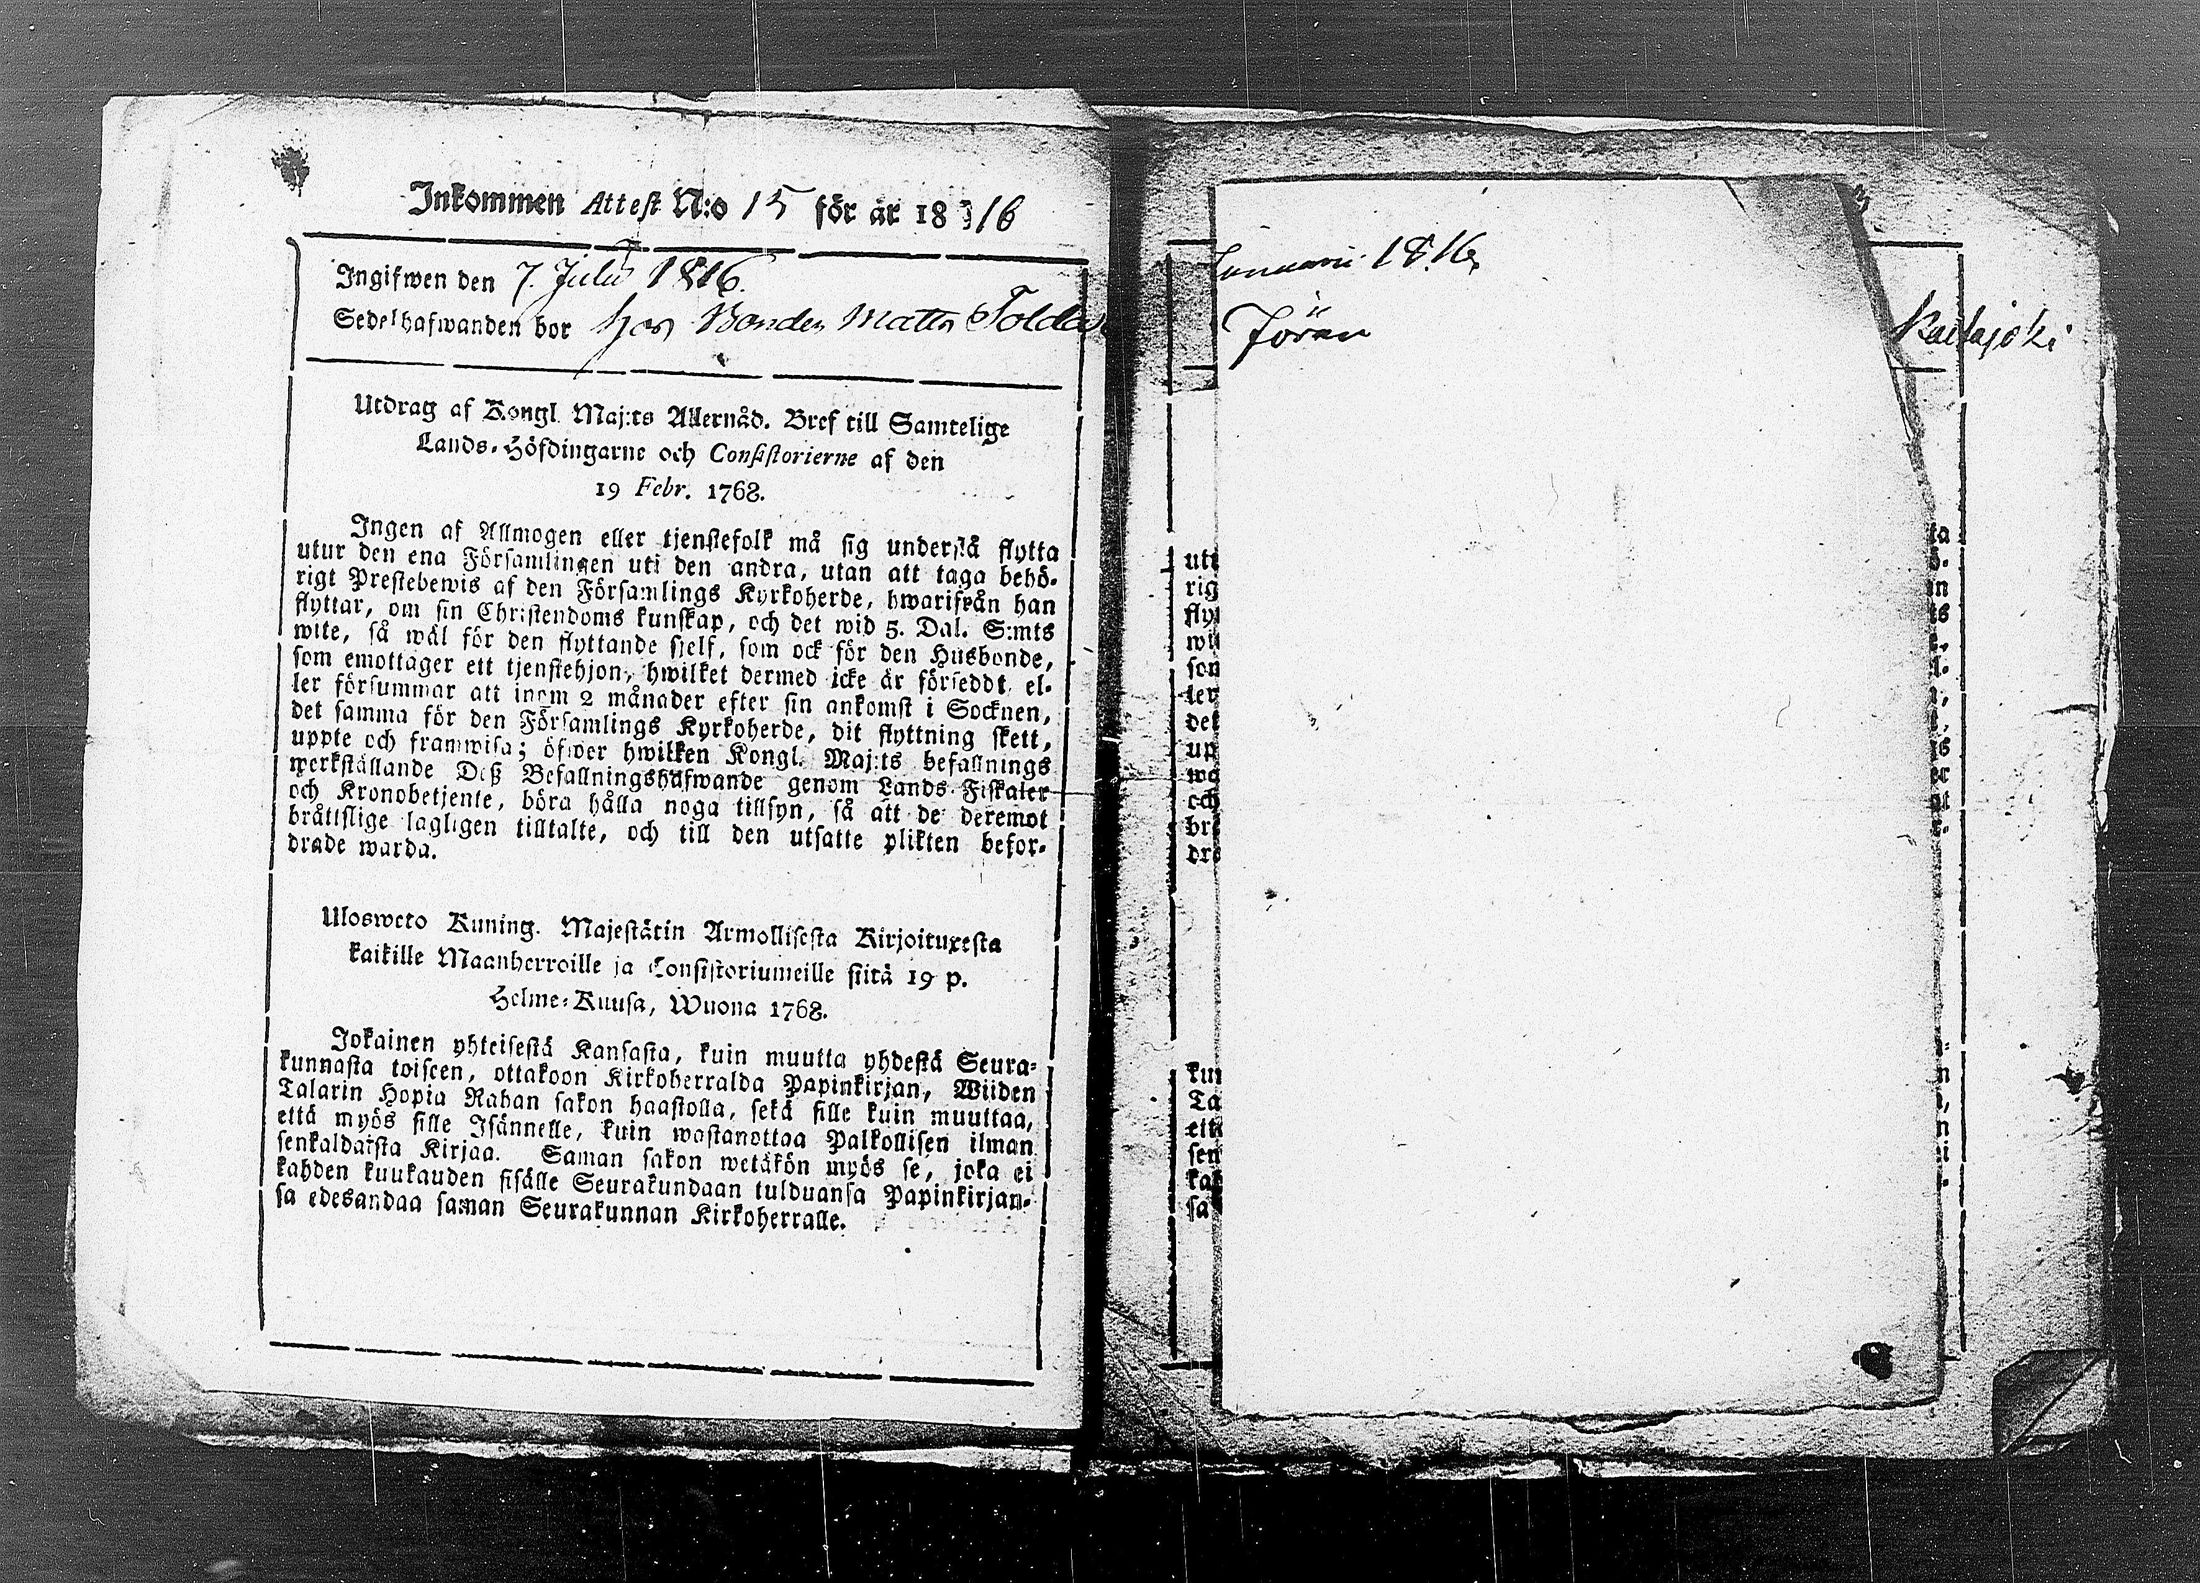 Inkommen Attest N:o 15 för år 18 16
Ingifwen den 7. Julii 1816.
Sedelhafwanden bor hos Bonden Matts Tolda
Utdrag af Kongl Maj:ts Allernåd. Bref till Samtelige
Lands-Höfdingarne och Consistorierne af den
19 Febr. 1768.
Ingen af Allmogen eller tjenstefolk må sig understå flytta
utur den ena Församlingen uti den andra, utan att taga behö-
rigt Prestebewis af den Församlings Kyrkoherde, hwarifrån han
flyttar, om sin Christendoms kunskap, och det wid 5. Dal. S:mts
wite, så wäl för den flyttande sjelf, som ock för den Husbonde,
som emottager ett tjenstehjon, hwilket dermed icke är förseddt, el-
ler försummar att inom 2 månader efter sin ankomst i Socknen,
det samma för den Församlings Kyrkoherde, dit flyttning skett,
uppte och framwisa; öfwer hwilken Kongl. Maj:ts befallnings
werkställande Deß Befallningshafwande genom Lands Fiskaler
och Kronobetjente, böra hålla noga tillsyn, så att de deremot
bråttslige lagligen tilltalte, och till den utsatte plikten befor-
drade warda.
Uloswcto Kuning. Majestätin Armollisesta Kirjoituxesta
kaikille Maanherroille ja Consistoriumeille siitä 19 p.
Helme-Kuusa, Wuona 1768.
Jokainen yhteisestä Kansasta, kuin muutta yhdestä Seura-
kunnasta toiseen, ottakoon Kirkoherralda Papinkirjan, Wiiden
Talarin Hopia Rahan sakon haastolla, sekä sille kuin muuttaa,
että myös sille Isännelle, kuin wastanottaa Palkollisen ilman
senkaldaista Kirjaa. Saman sakon wetäkön myös se, joka ei
kahden kuukauden sisälle Seurakundaan tulduansa Papinkirjan-
sa edesandaa saman Seurakunnan Kirkoherralle.
Januarii 1816.
Jöran Kallajoki
utu ta
rig ö-
fly n
wi ts
som e,
ler l-
det
up
we
och
bre
dra
kun
Ta
ett
sen
kah
sa